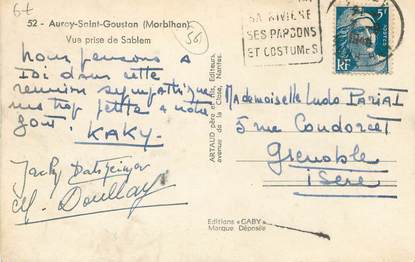 64
52 - Auray-Saint-Goustan (Morbihan)
Vue prise de Sablem
561
Nous pensons à
Toi dans cette
réunion sympathique
mais trop petite à notre
goût!
KAKY.
Jacky
Doullay
ARTAUD père et fils, Editeurs
avenue de la Close, Nantes.
SA RIVIÈRE
SES PARDONS
ET COSTUMES
5F
RF
Mademoiselle Ludo PARIAT
5 rue Condorcet
Grenoble
Isère
Editions "GABY"
Marque Déposée